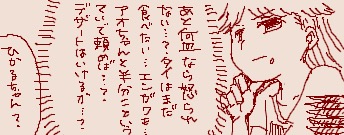 あと何皿なら怒られ
ない…？タイはまだ
食べたい…エンガワも…
アオちゃんと半分こという
ていで頼めば…？
デザートはいけるか…？
ひかるちゃん？